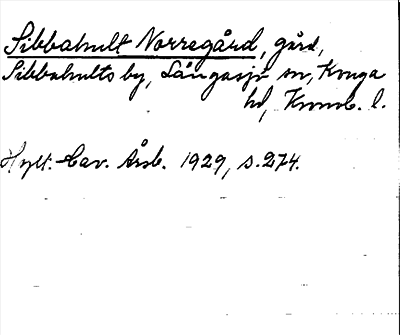 Sibbahult Norregård, gård,
Sibbahults by, Långasjö sn, Konga
hd, Kronob. l.
Hylt.-Cav. Årsb. 1929, s. 274.